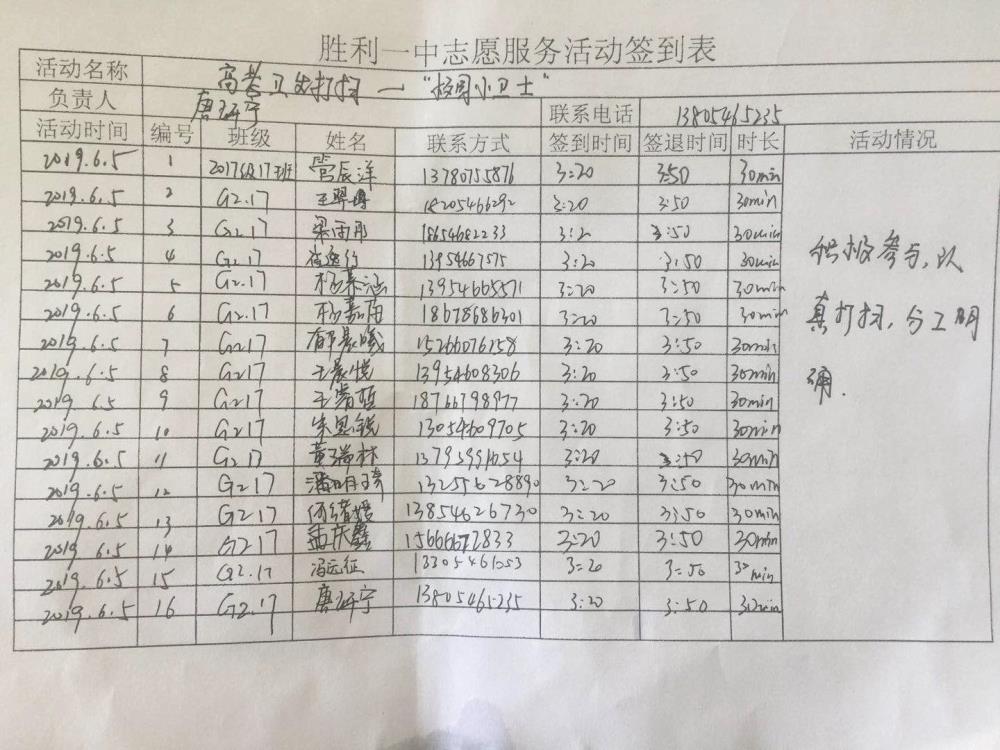 胜利一中志愿服务活动签到表
活动名称 高考卫生打扫一"校园小卫士"
负责人 唐研宁 联系电话 13805465235
活动时间 编号 班级 姓名 联系方式 签到时间 签退时间 时长 活动情况
2019.6.5 1 2017级17班 管辰洋 13780755876 3:20 3:50 30min
2019.6.5 2 G2.17 18205466292 3:20 3:50 30min
2019.6.5 3 G2.17 梁雨彤 18654682233 3:20 3:50 30min
2019.6.5 4 G2.17 13954667575 3:20 3:50 30min
2019.6.5 5 G2.17 杨慕涵 13954665571 3:20 3:50 30min
2019.6.5 6 G2.17 杨嘉茵 18678686301 3:20 3:50 30min
2019.6.5 7 G217 郗晨曦 15266076258 3:20 3:50 30min
2019.6.5 8 G217 王晨悦 13954608306 3:20 3:50 30min
2019.6.5 9 G217 王睿哲 18766798977 3:20 3:50 30min
2019.6.5 10 G217 朱恩锐 13054609705 3:20 3:50 30min
2019.6.5 11 G217 黄瑞林 13795991054 3:20 3:50 30min
2019.6.5 12 G217 潘明琦 13255628890 3:20 3:50 30min
2019.6.5 13 G217 13854626730 3:20 3:50 30min
2019.6.5 14 G217 孟庆鑫 15666672833 3:20 3:50 30min
2019.6.5 15 G2.17 冯远征 13305461053 3:20 3:50 30min
2019.6.5 16 G2.17 唐研宁 13805465235 3:20 3:50 30min
积极参与,认
真打扫,分工明
确.